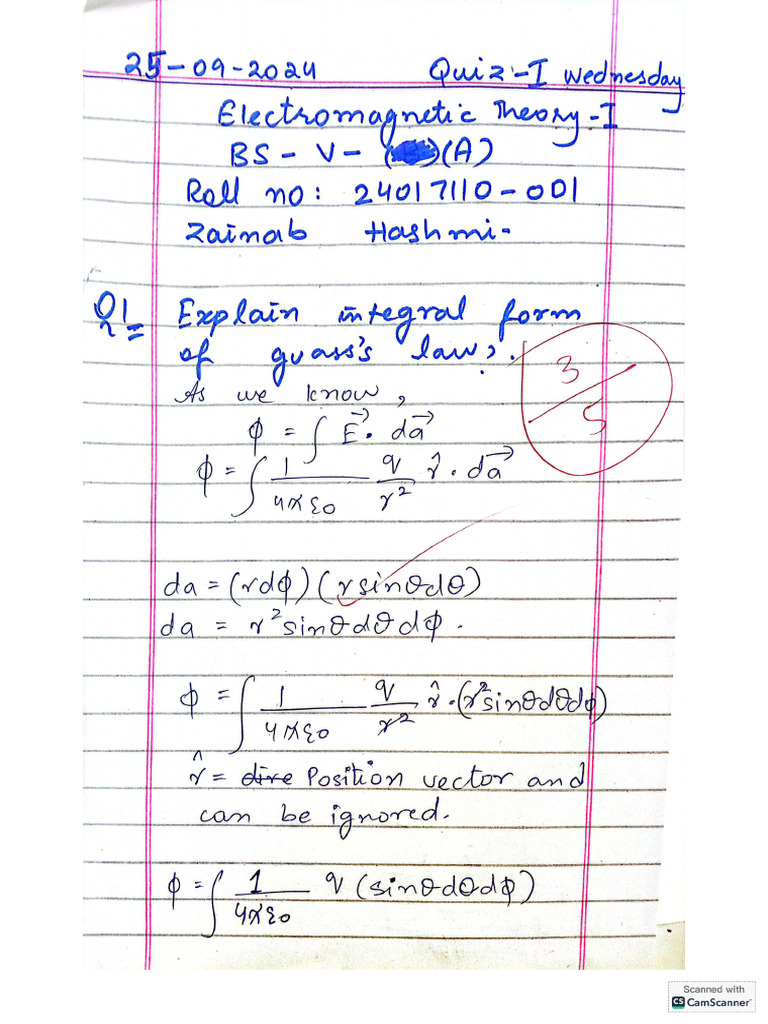 25-09-2024 Quiz-I Wednesday
Electromagnetic Theory-I
BS - V - (A)
Roll no: 24017110-001
Zainab Hashmi-
Q1 Explain integral form
of guass's law?.
As we know,
3/5
ϕ = ∫ E⃗ . da⃗
ϕ = ∫ 1/4πε0 q/r² r̂ . da⃗
da = (rdϕ) (rsinθdθ)
da = r²sinθdθdϕ.
ϕ = ∫ 1/4πε0 q/r² r̂ . (r²sinθdθdϕ)
r̂ = dire Position vector and
can be ignored.
ϕ = ∫ 1/4πε0 q (sinθdθdϕ)
Scanned with
CS CamScanner